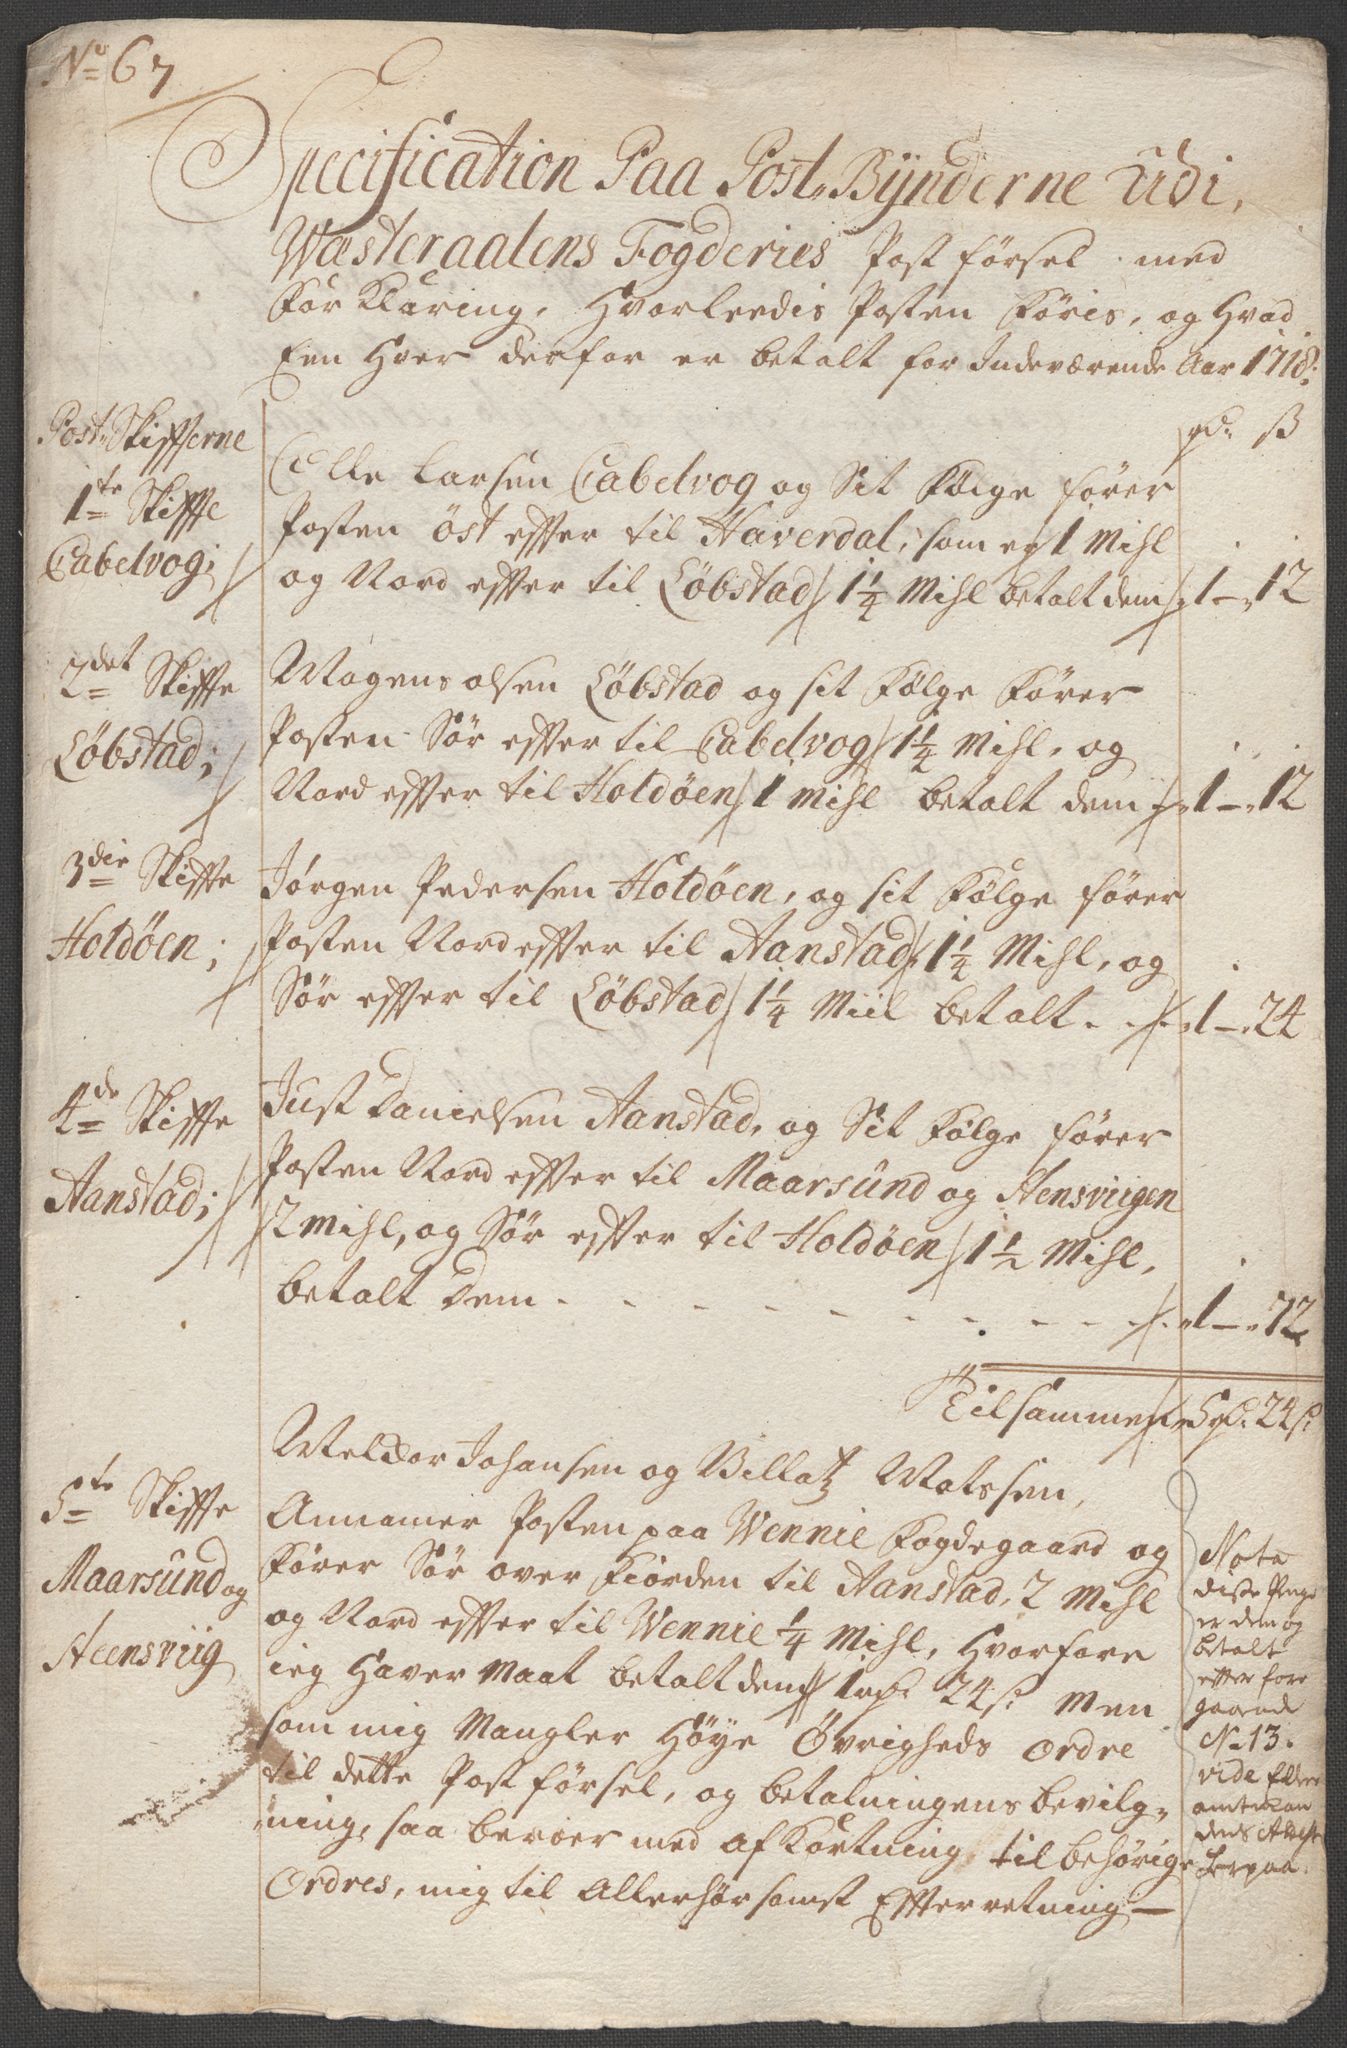 No 67
Specification Paa Post-Bÿnderne Udi,
Wæsteraalens Fogderies Post førsel med
For Klaring, Hvorleedis Posten Føris, og Hvad
Een Hver derfor er betalt for Indeværende Aar 1718:
Post-Skifferne
rdr ß
1te Skiffte
Cabelvog;
Elle Larsen Cabelvog og Sit Følge fører
Posten Öst effter til Haverdal, som er 1 Mihl
og Nord effter til Löbstad 1 1/4 Mihl betalt dem 1 - 12
2det Skiffte
Löbstad;
Mogens Olsen Löbstad og sit Følge Fører
Posten Sør effter til Cabelvog 1 1/2 Mihl, og
Nord effter til Holdöen 1 Mihl betalt dem 1 - 12
3die Skiffte
Holdöen;
Jørgen Pedersen Holdöen, og sit Følge fører
Posten Nord effter til Aanstad 1 1/2 Mihl, og
Sør effter til Löbstad 1 1/4 Miil betalt . . 1 - 24
4de Skiffte
Aanstad;
Just Danielsen Aanstad, og Sit Følge fører
Posten Nord effter til Maarsund og Stensviigen
2 Mihl, og Sør effter til Holdöen 1 1/2 Mihl,
betalt Dem - - - - - - - - 1 - 72
Tilsammen 5 rdr 24 ß
5te Skiffte
Maarsund og
Steensviig
Meldor Johansen og Villatz Matssen,
Annamer Posten paa Wennie Fogdegaard og
Fører Sør over Fiorden til Aanstad, 2 Mihl
og Nord effter til Wennie 1/4 Mihl, Hvorfore
ieg Haver Maat betalt dem 1 rdr 24 ß: Men
som mig Mangler Høye Övrigheds Ordre
til dette Post førsel, og betalningens bevilg-
ning, saa beroer med af Kortning til behörige
Ordres, mig til Allerhørsamst Effterretning —
Nota
disse Penge
er dem og
betalt
effter fore
gaaende
No 13.
vide
amtman
dens Attest
herpaa.